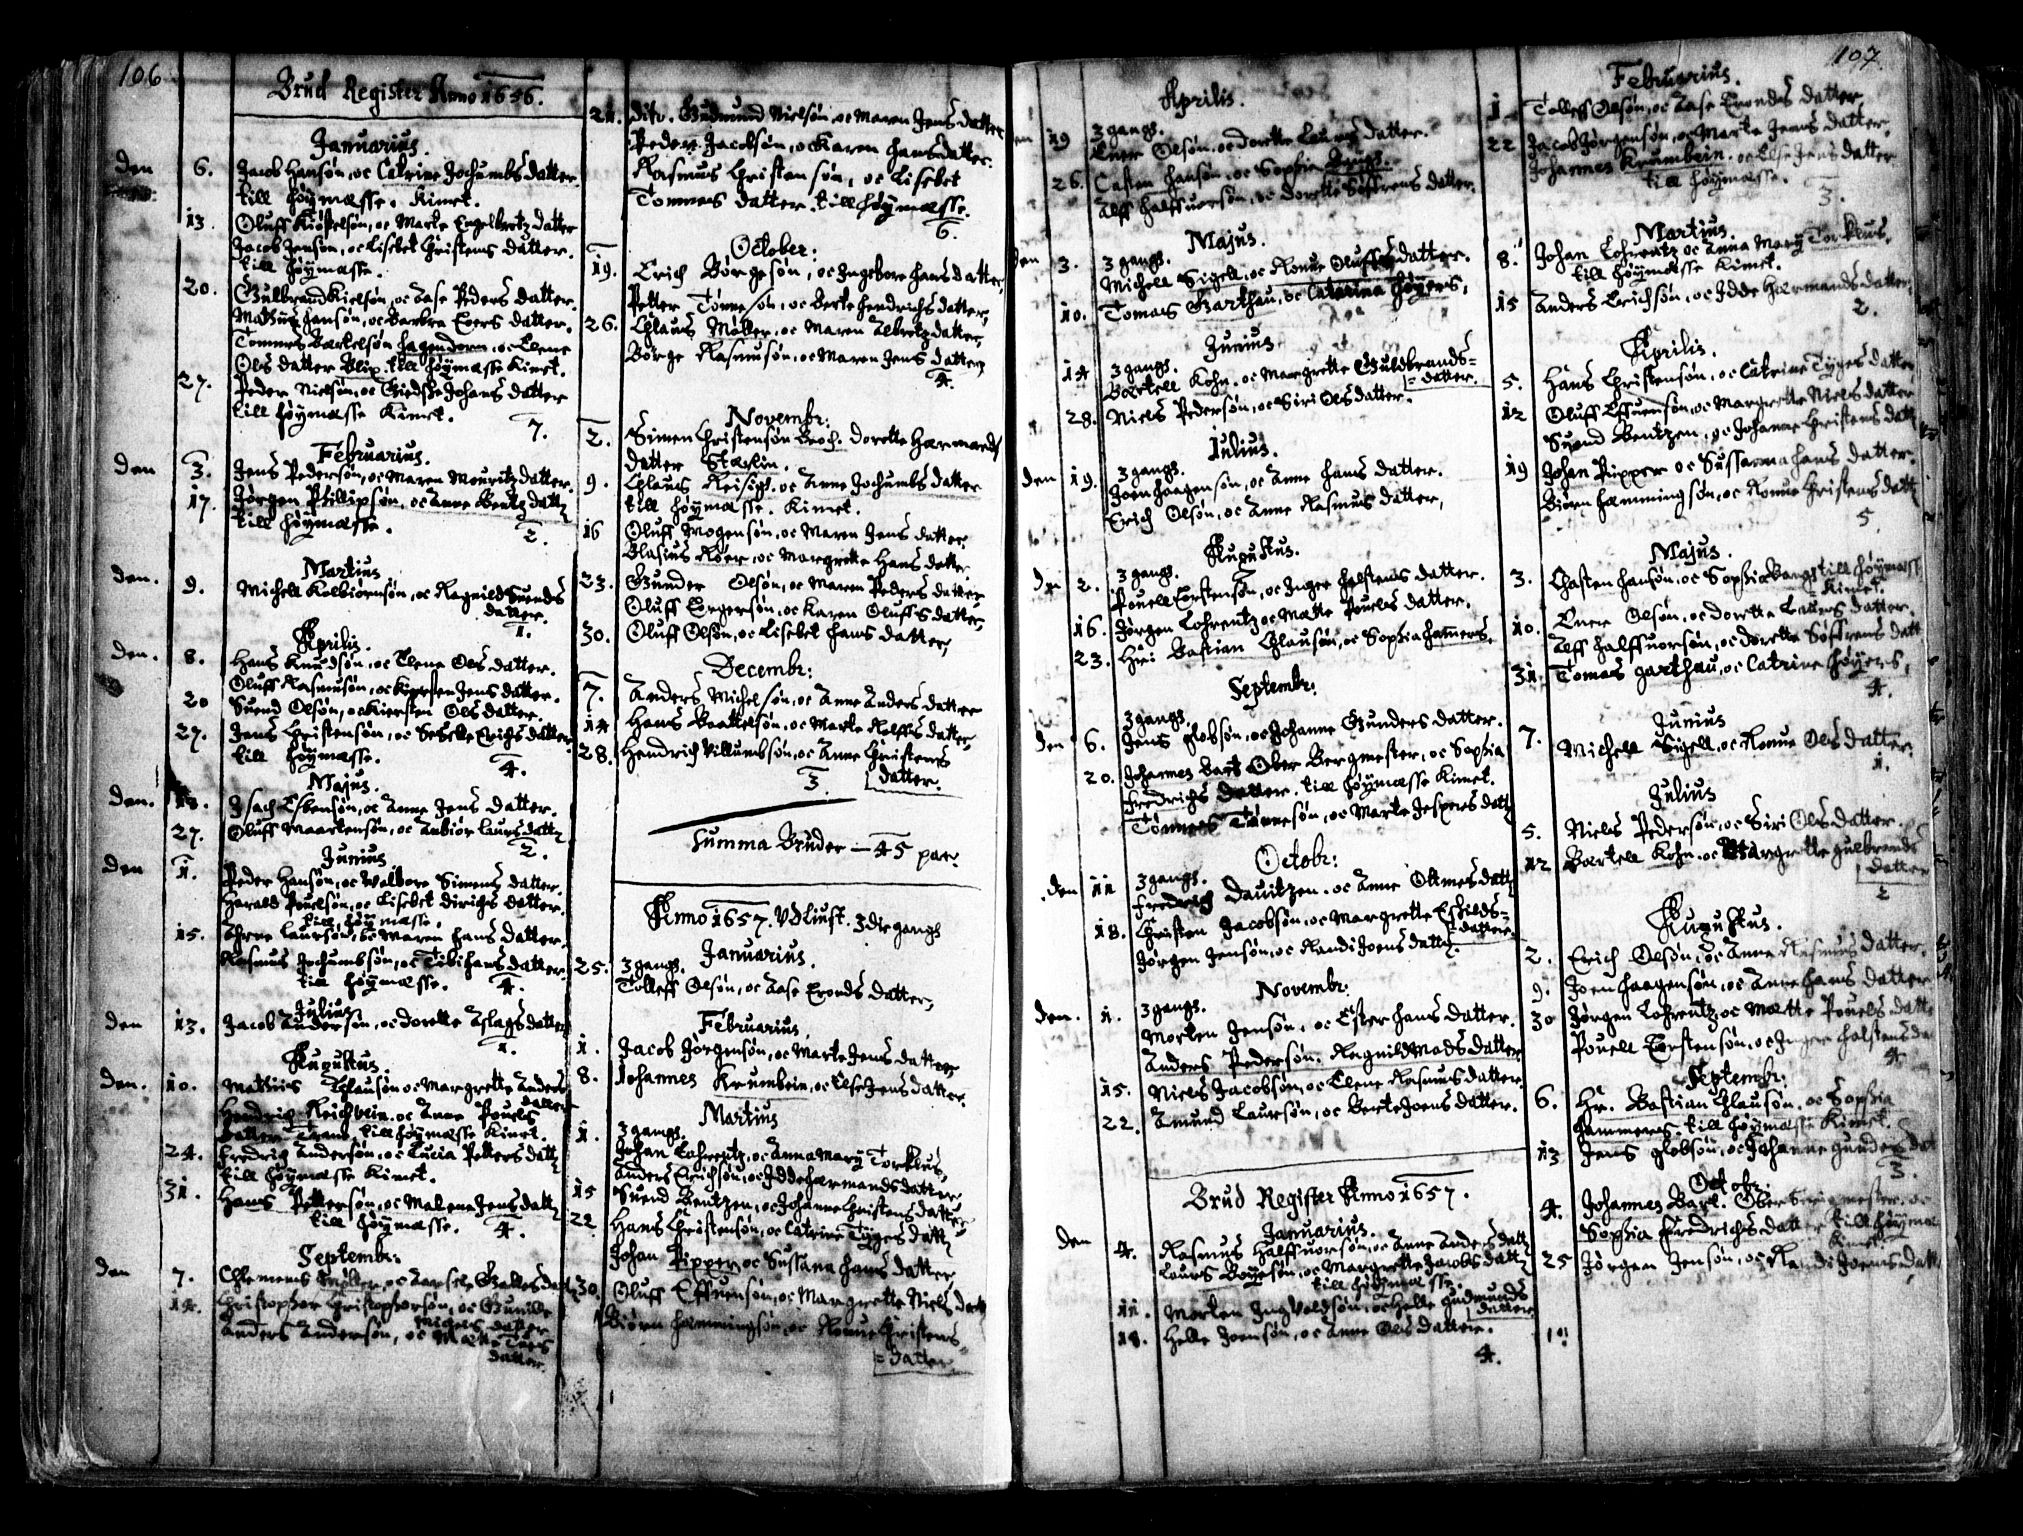 106
Brud Register Anno 1656.
Januarius.
den 6. Jacob Hansøn, oc Catrine Jochumbs datter.
till høymæsse. Kimet.
13 Oluff Kiøstelsøn, oc Marte Engelbertz datter
Jacob Jensøn, oc Lisebet Christens datter.
till høymæsse.
20. Gulbrand Kielsøn, oc Aase Peders datter.
Mathiis Hansøn, oc Barbra Evers datter.
Tommes Bartelsøn Hagendorn, oc Elene
Ols datter Blix. till høymæsse Kimet.
27. Peder Nielsøn, oc Giedske Johans datter
till høymæsse Kimet.
7.
Februarius.
den 3. Jens Pedersøn, oc Maren Mouritz datter.
17. Jørgen Phillipsøn, oc Anne Bentz datt
till høymæsse.
2.
Martius
den. 9. Michell Kolbiørnsøn, oc Ragnild Suends
datter.
1.
Aprilis.
den. 8. Hans Knudsøn, oc Elene Ols datter.
Oluff Rasmusøn, oc Kirsten Jens datter.
20 Suend Olsøn, oc Kiersten Ols datter.
27. Jens Christensøn, oc Seseele Erichs datter
till høymæsse.
4.
Majus.
den. 18. Isach Esbensøn, oc Anne Jens datter.
27. Oluff Maartensøn, oc Anbiør Laurs datt
2.
Junius
den 1. Peder Hansøn, oc Walbore Simens datter.
Harald Pouelsøn, oc Lisebet Dirichs datter.
till høymæsse.
15. Affue Laursøn, oc Maren Hans datter.
Rasmus Jochumbsøn, oc Tibi Hans datter
till høymæsse.
4.
Julius
den 13. Jacob Andersøn, oc Dorette Aslags datter
1.
Augustus.
den. 10. Mathiis Clausøn oc Margrette Anders
datter
Hendrich Reichwein. oc Anne Pouels
datter Trane, till høymæsse Kimet.
24. Fredrich Andersøn, oc Lucia Petters datt
till høymæsse Kimet.
31. Hans Pettersøn, oc Malene Jens datt
till høymæsse.
4.
Septembr:
den 7. Clemens Møller, oc Karsele Galles datt
14. Christopher Christophersøn, oc Gunilde
Nigels datter
Anders Andersøn, oc Mætte Toers
datter.
21. dito. Gudmund Nielsøn, oc Maren Jens datter
Peder Jacobsøn, oc Karen Hans datter.
Rasmus Christensøn, oc Lisebet
Tommes datter. till høymæsse.
6.
October:
19. Erich Børgesøn, oc Ingebore Hans datter,
Petter Tønnesøn, oc Berte Hendrichs datter,
26. Claus Møller, oc Maren Albretz datter,
Børge Rasmusøn, oc Maren Jens datter,
4.
Novembr:
2. Simen Christensøn Broch. Dorette Harmands
datter Stærlin.
9. Claus Reisig, oc Anne Jochumbs datter
till høymæsse. Kimet.
16 Oluff Mogensøn, oc Maren Jens datter
Blasius Røer, oc Margrette Hans datter
23. Gunder Olsøn, oc Maren Peders datter
Oluff Engersøn, oc Karen Oluffs datter
30. Oluff Olsøn, oc Lisebet Hans datter,
Decembr:
7. Anders Michelsøn, oc Anne Anders datter
14 Hans Baattelsøn, oc Marte Rolffs datter,
28. Hendrich Villumbsøn, oc Anne Christens
datter.
3.
Summa Bruder — 45 par.
Anno 1657. Vdliust. 3die gangs
Januarius.
25. 3 gangs.
Tolleff Olsøn, oc Aase Eronds datter,
Februarius
1. Jacob Jørgensøn, oc Marte Jens datter
8. Johannes Krumbein, oc Else Jens datter.
Martius
1. 3 gangs.
Johan Lohrentz, oc Anna Mary Torklus,
Anders Erichsøn, oc Idde Harmands datter
15 Suend Bentzen, oc Johanne Christens datter
22 Hans Christensøn, oc Catrine Tyges datt
Johan Pipper, oc Sussana Hans datter
30. Oluff Effuensøn, oc Margrette Niels datt
Biørn Hemmingsøn, oc Ronue Christens=
= datter
107.
Aprilis.
19 3 gangs.
Ener Olsøn, oc Dorette Laurs datter.
26. Casten Hansøn, oc Sophia Bangs.
Alff Halffuorsøn, oc Dorette Søffrens datter.
Majus.
den 3. 3 gangs.
Michell Sigell, oc Ronue Oluffs datter.
10. Tomas Garthau, oc Catarina Høyers,
Junius
14 3 gangs.
Bartell Kohn. oc Margrette Guldbrands=
= datter.
28. Niels Pedersøn, oc Siri Ols datter.
Julius.
den 19. 3 gangs.
Joen Haagensøn, oc Anne Hans datter.
Erich Olsøn, oc Anne Rasmus datter,
Augustus.
den 2. 3 gangs.
Pouell Torstensøn, oc Inger Holstens datter.
16. Jørgen Lohrentz, oc Mætte Pouels datter.
23. Hr: Bastian Clausøn, oc Sophia Hamers,
Septembr:
den 6. 3 gangs.
Jens Globsøn, oc Johanne Gunders datter.
20. Johannes Bart Ober Bergmester, oc Sophia
Fredrichs datter. till høymæsse Kimet.
Tønnes Tønnesøn, oc Marte Jespers datt
Octobr:
den 11 3 gangs.
Fredrich Dauitzen. oc Anne Oltmes datt
18. Christen Jacobsøn, oc Margrette Eskilds=
= datter.
Jørgen Jensøn, oc Randi Joens datt.
Novembr:
den. 1. 3 gangs.
Morten Jensøn, oc Ester Hans datter.
Anders Pedersøn. Ragnild Mads datter
15. Niels Jacobsøn, oc Elene Rasmus datter
22. Amund Laursøn, oc Berte Joens datter.
Brud Register Anno 1657.
Januarius.
den 4. Rasmus Halffuorsøn, oc Anne Anders datt
Laurs Boyesøn, oc Margrette Jacobs datt
till høymæsse.
11. Morten Inguoldsøn, oc Helle Gudmunds
datter
18. Helle Joensøn, oc Anne Ols datter.
4.
Februarius.
1 Tolleff Olsøn, oc Aase Eronds datter,
22 Jacob Jørgensøn, oc Marte Jens datter.
Johannes Krumbein. oc Else Jens datter
till høymæsse.
3.
Martius.
8. Johan Lohrentz oc Anna Mary Torklus.
till høymæsse Kimet.
15 Anders Erichsøn, oc Idde Harmands datter
2.
Aprilis.
5. Hans Christensøn, oc Catrine Tyges datter
12 Oluff Effuensøn, oc Margrette Niels datter
Suend Bentzen, oc Johanne Christens datt
19 Johan Pipper oc Sussanna Hans datter.
Biørn Hemmingsøn, oc Ronue Christens datt
5.
Majus.
3. Chasten Hansøn, oc Sophia Bangs till høymæss
Kimet.
10. Ener Olsøn, oc Dorette Laurs datter.
Alff Halffuorsøn, oc Dorette Søffrens datt
31 Tomas Garthau, oc Catrine Høyers,
4.
Junius
7. Michell Sigell, oc Ronue Ols datter.
1.
Julius
5. Niels Pedersøn, oc Siri Ols datter.
12 Bartell Kohn. oc Margrette Gulbrands
datter
2
Augustus.
2. Erich Olsøn, oc Anne Rasmus datter.
9. Joen Haagensøn, oc Anne Hans datter
30 Jørgen Lohrentz oc Mætte Pouels datt
Pouell Torstensøn, oc Inger Holstens da
4
Septembr:
6. Hr. Bastian Clausøn, oc Sophia
Hammers. till høymæsse Kimet.
13 Jens Globsøn, oc Johanne Gunders dat
3.
Octobr:
4. Johannes Bart. Ober Bergmester. oc
Sophia Fredrichs datter till høymæ
Kimet.
25 Jørgen Jensøn, oc Randi Joens datt